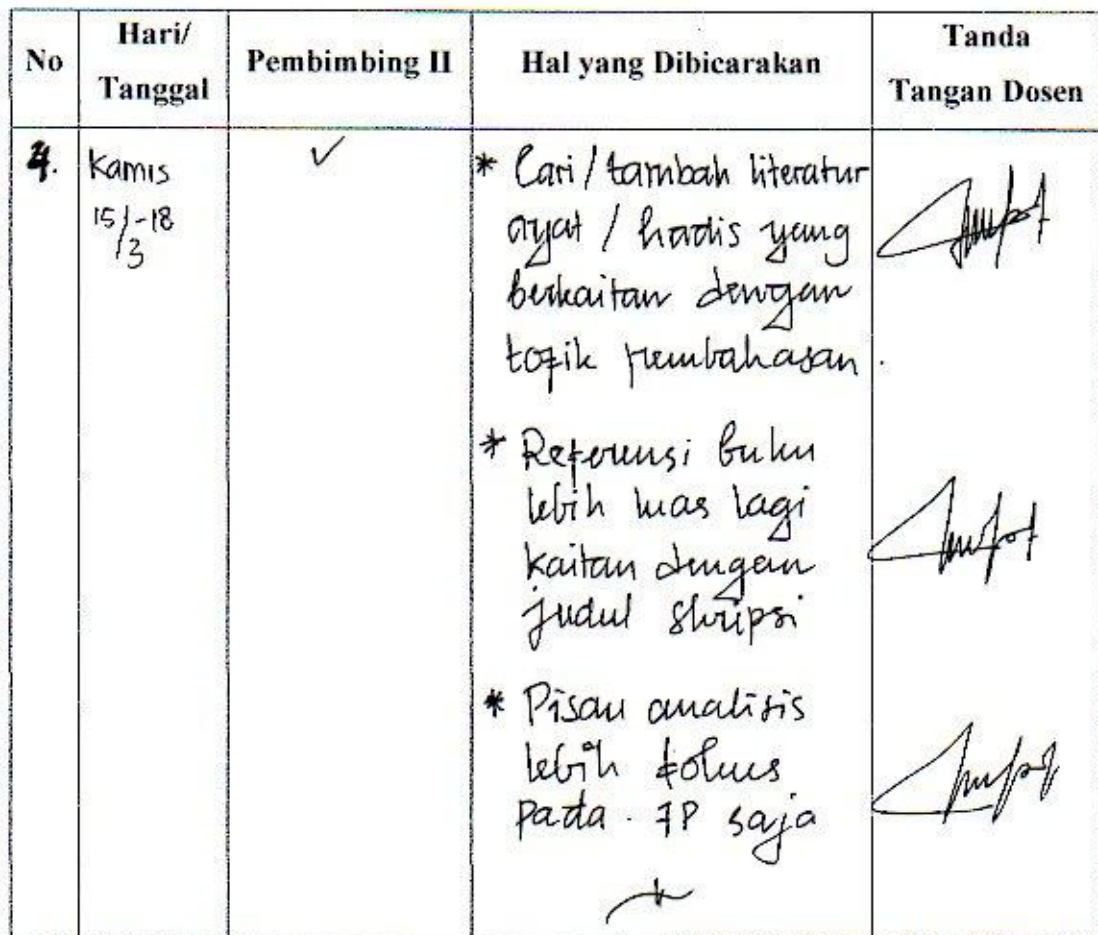 No
Hari/
Tanggal
Pembimbing II
Hal yang Dibicarakan
Tanda
Tangan Dosen
4.
Kamis
15/3-18
✓
* Cari / tambah literatur
ayat / hadis yang
berkaitan dengan
topik pembahasan.
* Referensi buku
lebih luas lagi
kaitan dengan
judul skripsi
* Pisau analisis
lebih fokus
pada 7P saja